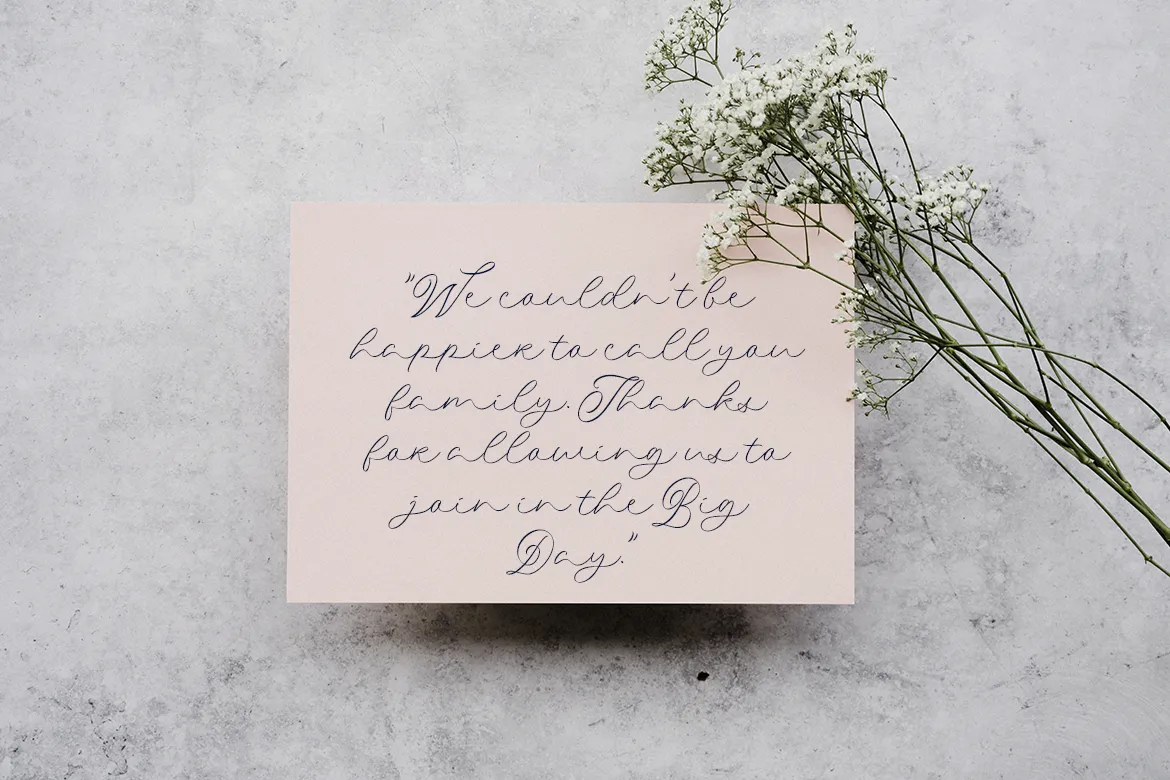 "We couldn't be
happier to call you
family. Thanks
for allowing us to
join in the Big
Day."